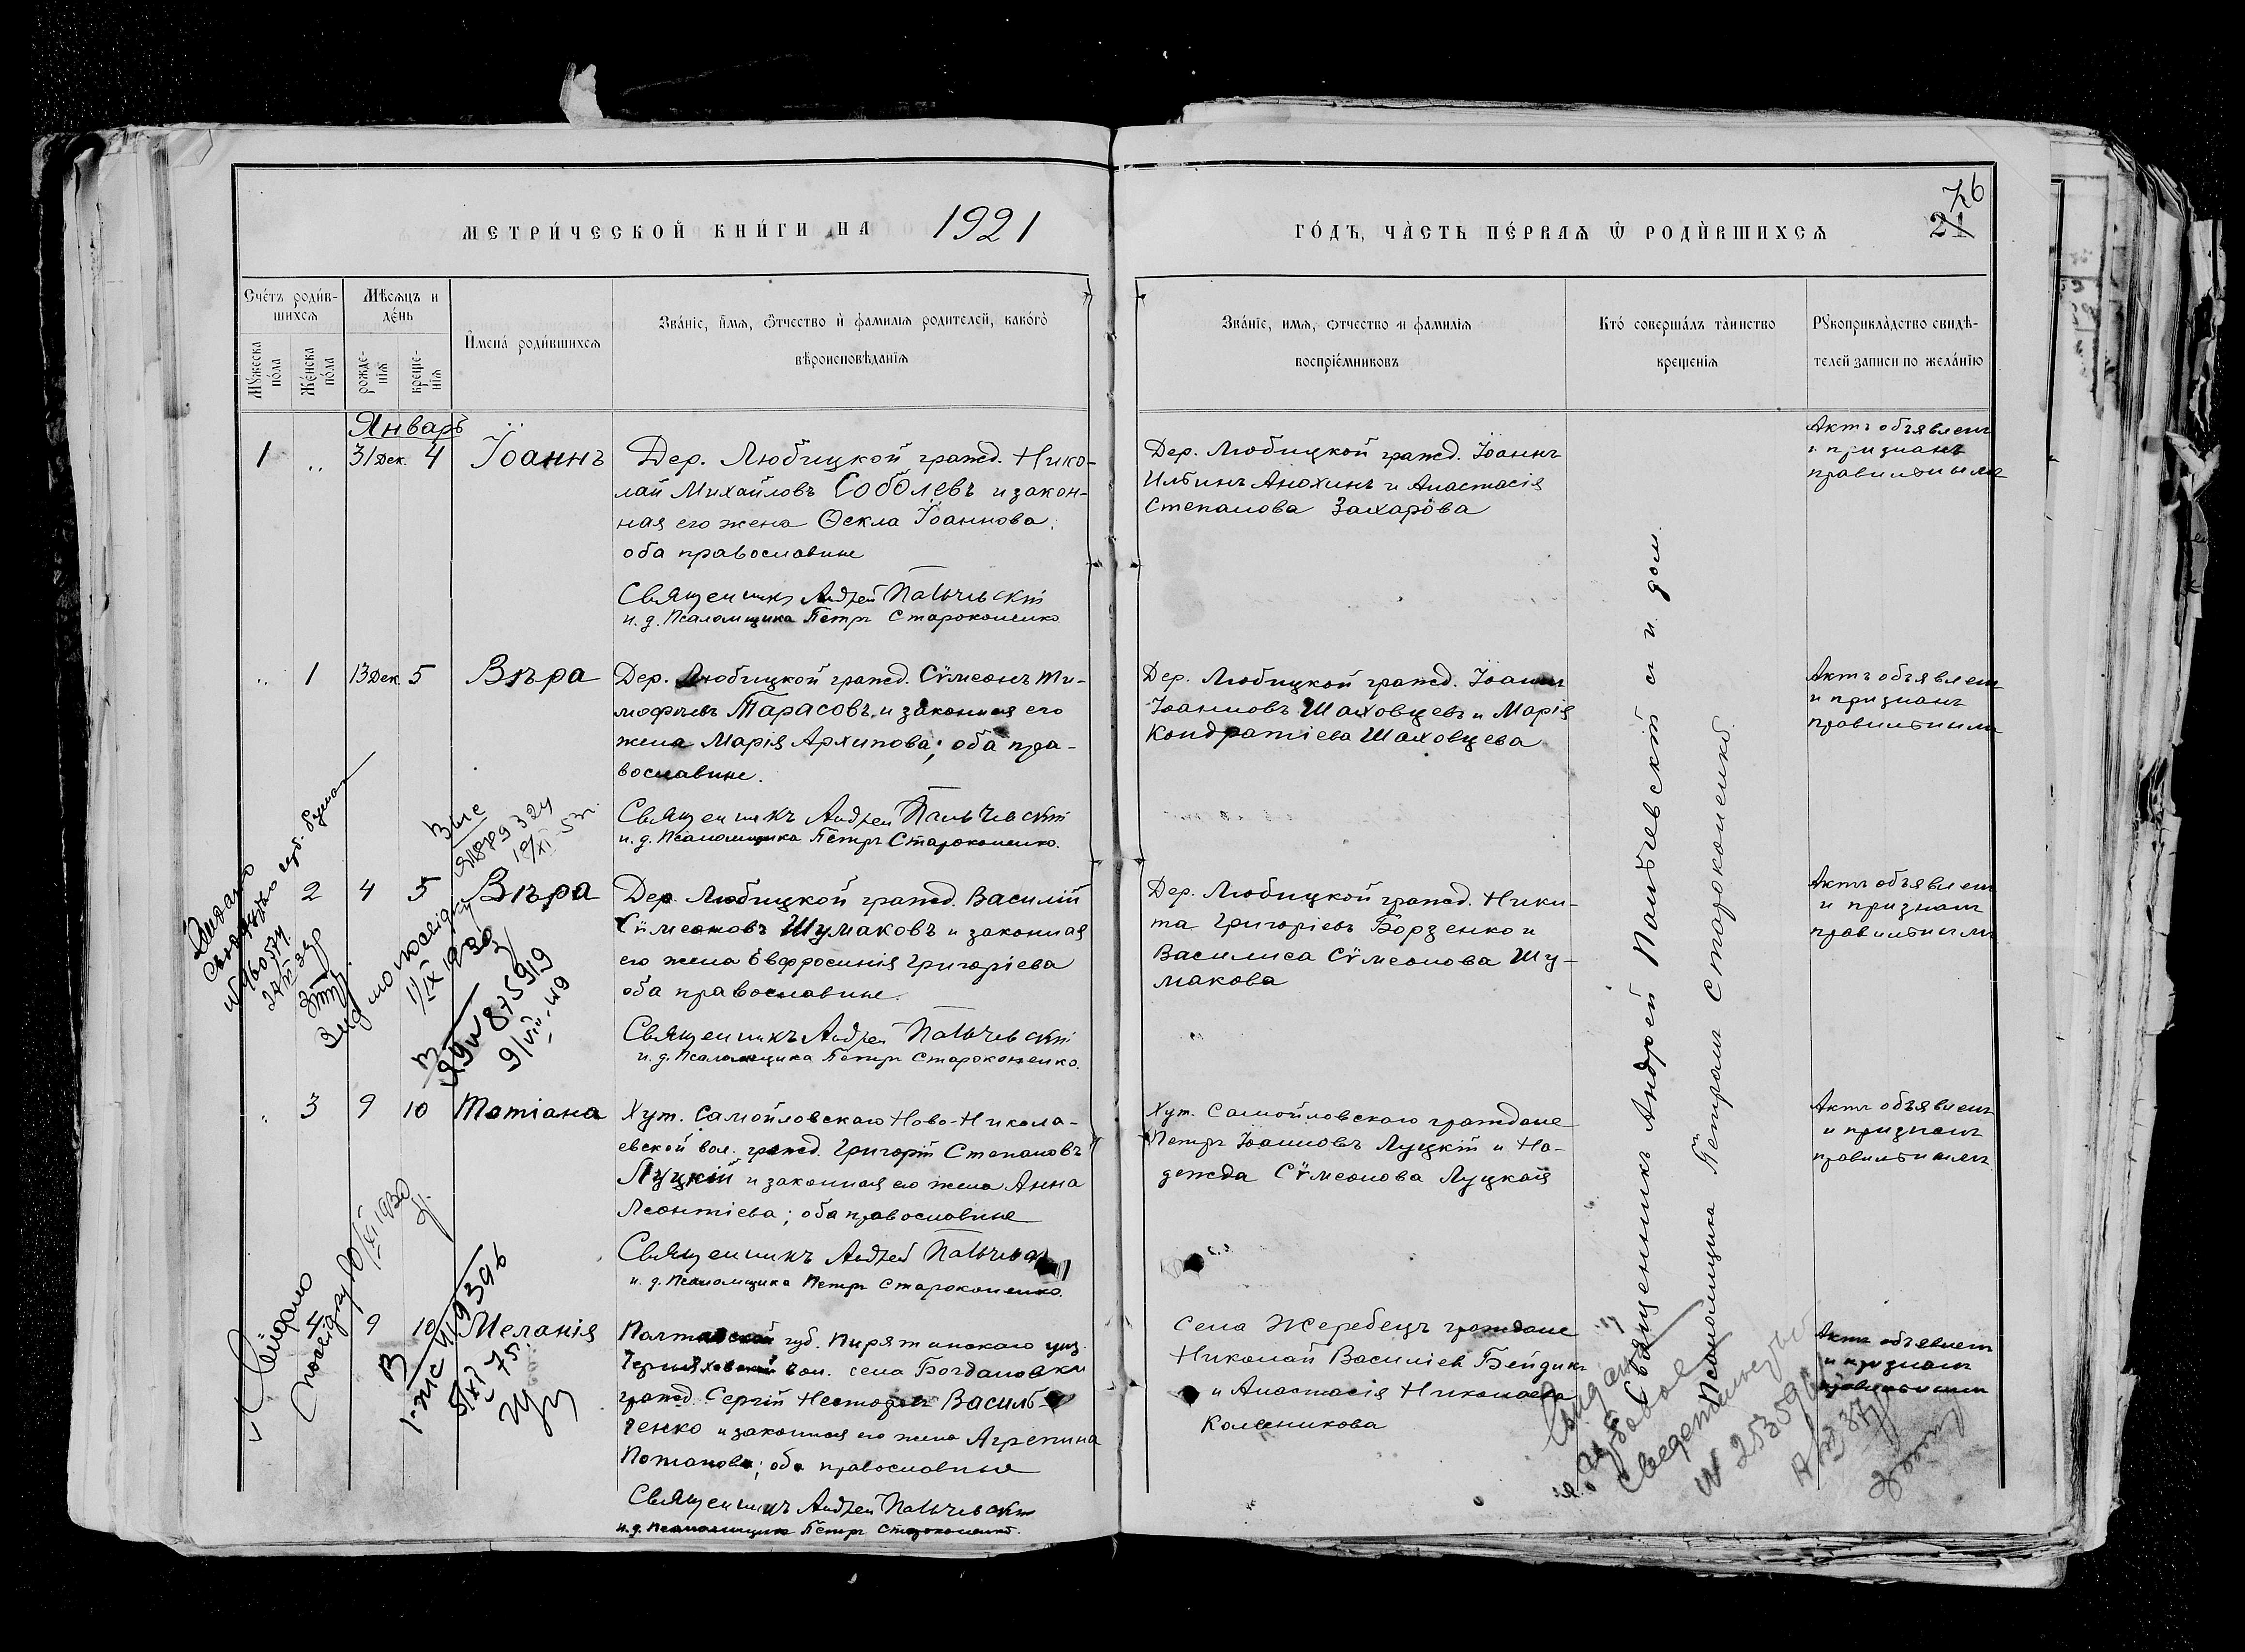 МЕТРИ́ЧЕСКОЙ КНИ́ГИ НА 1921
ГО́ДЪ, ЧА́СТЬ ПЕ́РВАѦ Ѽ РОДИ́ВШИХСѦ
76
21
Сче́тъ роди́в-
шихсѧ
Мѣсѧцъ и
де́нь
Мꙋжеска
по́ла
Же́нска
по́ла
рожде-
нїѧ
креще-
нїѧ
И҆мена́ роди́вшихсѧ
Зва́нїе, и҆́мѧ, ѻ҆́тчество и҆ фамилїѧ родителей, како́гѡ
вѣроисповѣ́данїѧ
Зва́нїе, имѧ, ѻтчество и фамилїѧ
воспрїе́мниковъ
Кто́ соверша́лъ та́инство
крещенїѧ
Рꙋкоприкла́дство свидѣ-
телей записи по жела́нїю
Январь
1 „ 31 Дек. 4 Іоаннъ
Дер. Любицкой гражд. Нико-
лай Михайловъ Соболевъ и закон-
ная его жена Ѳекла Іоаннова;
оба православные
Священникъ Андрей
и. д. Псаломщика Петръ Староконенко
Дер. Любицкой гражд. Іоаннъ
Ильинъ Анохинъ и Анастасія
Степанова Захарова
Актъ объявленъ
и признанъ
правильнымъ
„ 1 13 Дек. 5 Вѣра
Дер. Любицкой гражд. Сѵмеонъ Ти-
мофѣевъ Тарасовъ и законная его
жена Марія Архипова; оба пра-
вославные.
Священникъ Андрей
и. д. Псаломщика Петръ Староконенко.
Дер. Любицкой гражд. Іоаннъ
Іоанновъ Шаховцевъ и Марія
Кондратіева Шаховцева
Актъ объявленъ
и признанъ
правильнымъ
2 4 5 Вѣра
Дер. Любицкой гражд. Василій
Сѵмеоновъ Шумаковъ и законная
его жена Евфросинія Григоріева
оба православные.
Священникъ Андрей
и. д. Псаломщика Петръ Староконенко.
Дер. Любицкой гражд. Ники-
та Григоріевъ Борзенко и
Василиса Сѵмеонова Шу-
макова
Актъ объявленъ
и признанъ
правильнымъ
„ 3 9 10 Татіана
Хут. Самойловскаго Ново-Никола-
евской вол. гражд. Григорій Степановъ
Луцкій и законная его жена Анна
Леонтіева; оба православные
Священникъ Андрей
и. д. Псаломщика Петръ Староконенко.
Хут. Самойловскаго граждане
Петръ Іоанновъ Луцкій и На-
дежда Сѵмеонова Луцкая
Актъ объявленъ
и признанъ
правильнымъ
4 9 10 Меланія
Полтавской губ. Пирятинскаго уѣз.
Черняховской вол. села Богдановки
гражд. Сергій Несторовъ Василь-
ченко и законная его жена Агрепина
Потапова; оба православные
Священникъ Андрей
и. д. Псаломщика Петръ Староконенко.
Села Жеребецъ граждане
Николай Василіевъ Бейдикъ
и Анастасія Николаева
Колесникова
Актъ объявленъ
и признанъ
правильнымъ
Священникъ Андрей
Псаломщика Петръ Староконенко
1/IX 1930
875919
9/VIII-49